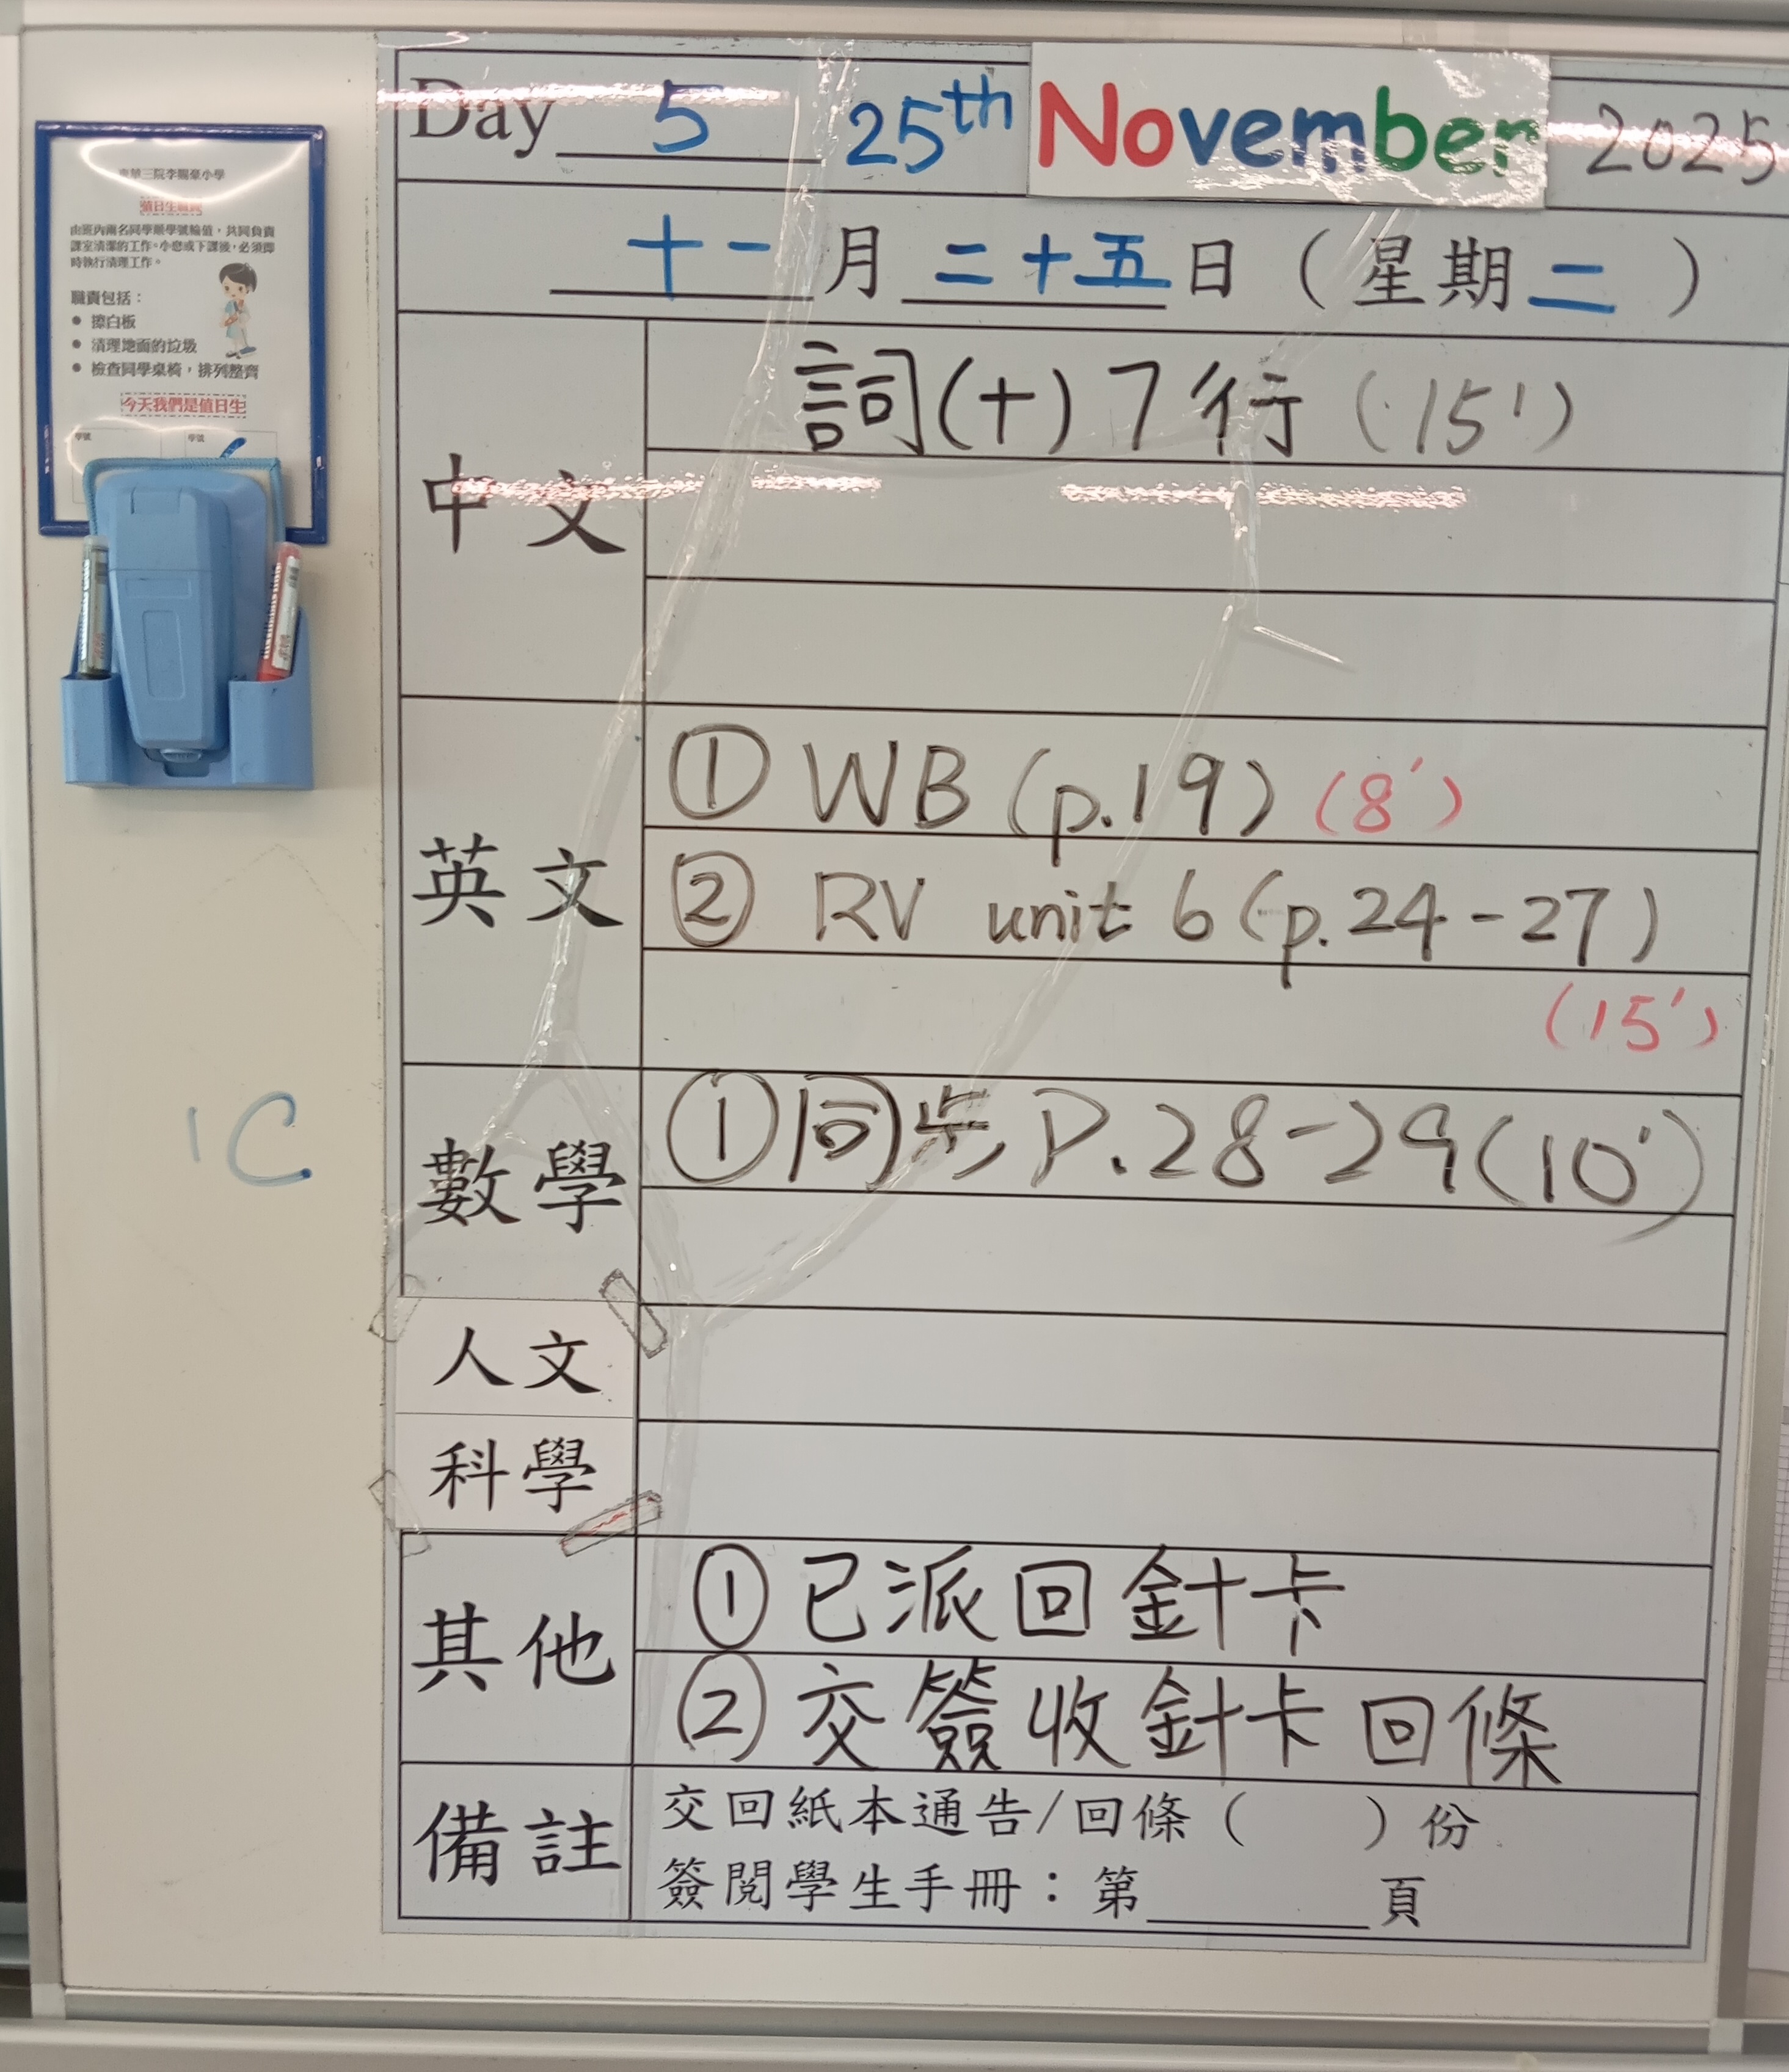 Day 5 25th November 2025
十一月二十五日（星期二）
中文
詞(十)7行(15')
英文
① WB (p.19) (8')
② RV unit 6 (p.24-27)
(15')
數學
①同步P.28-29(10')
人文
科學
其他
①已派回針卡
②交簽收針卡回條
備註
交回紙本通告/回條（　　）份
簽閱學生手冊：第______頁
1C
值日生職責
由班內兩名同學順學號輪值，共同負責
課室清潔的工作。小息或下課後，必須即
時執行清理工作。
職責包括：
● 擦白板
● 清理地面的垃圾
● 檢查同學桌椅，排列整齊
今天我們是值日生
學號 學號